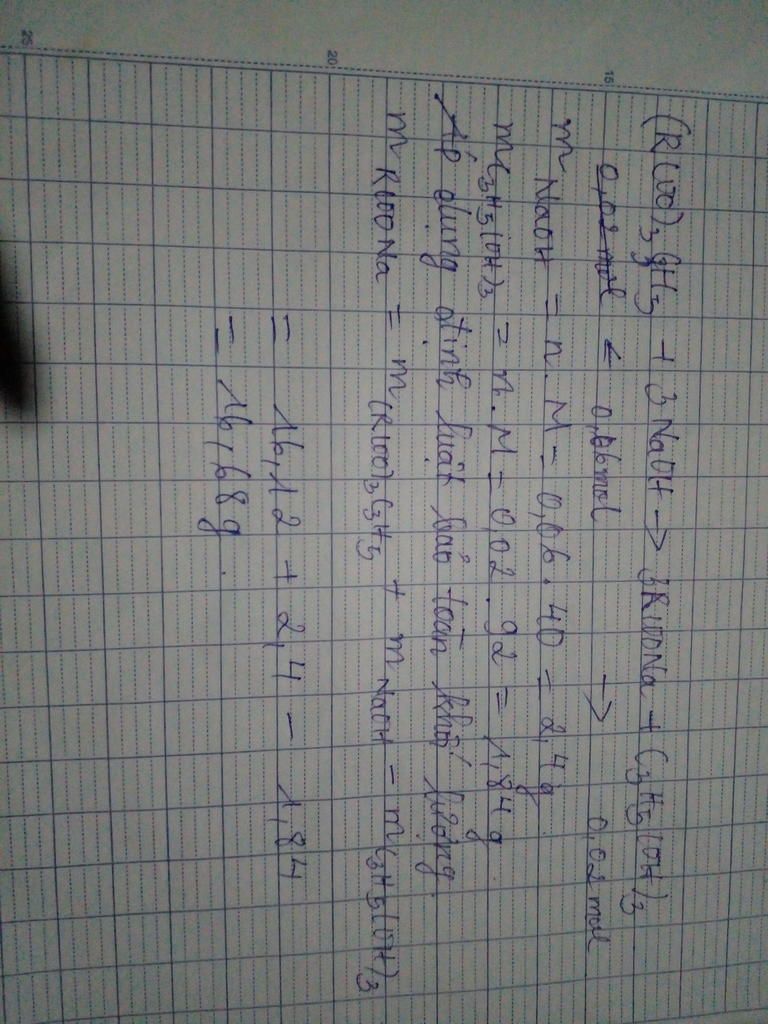 (RCOO)3C3H5 + 3NaOH → 3RCOONa + C3H5(OH)3
0,02 mol ← 0,06mol → 0,02 mol
m NaOH = n. M = 0,06. 40 = 2,4g
m C3H5(OH)3 = n. M = 0,02. 92 = 1,84g
Áp dụng định luật bảo toàn khối lượng.
m RCOONa = m (RCOO)3C3H5 + m NaOH - m C3H5(OH)3
= 16,12 + 2,4 - 1,84
= 16,68g.
15
20
25